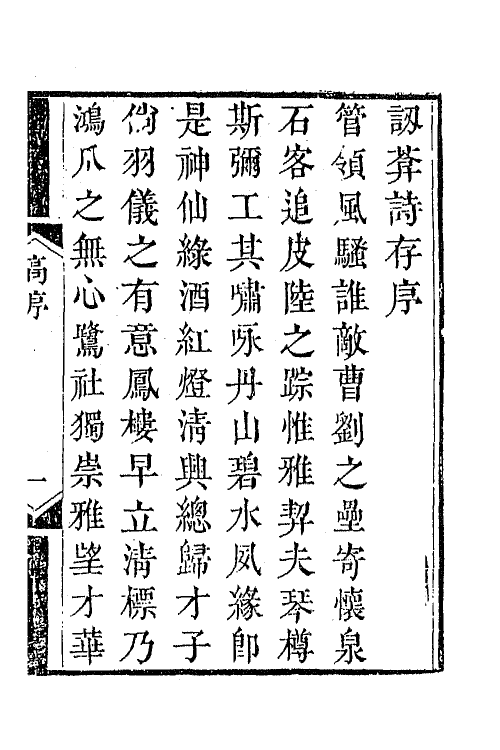 訒葊詩存序
管領風騷誰敵曹劉之壘寄懷泉
石客追皮陸之踪惟雅契夫琴樽
斯彌工其嘯咏丹山碧水夙緣卽
是神仙綠酒紅燈淸興總歸才子
倘羽儀之有意鳳樓早立淸標乃
鴻爪之無心鷺社獨崇雅望才華
高序
一